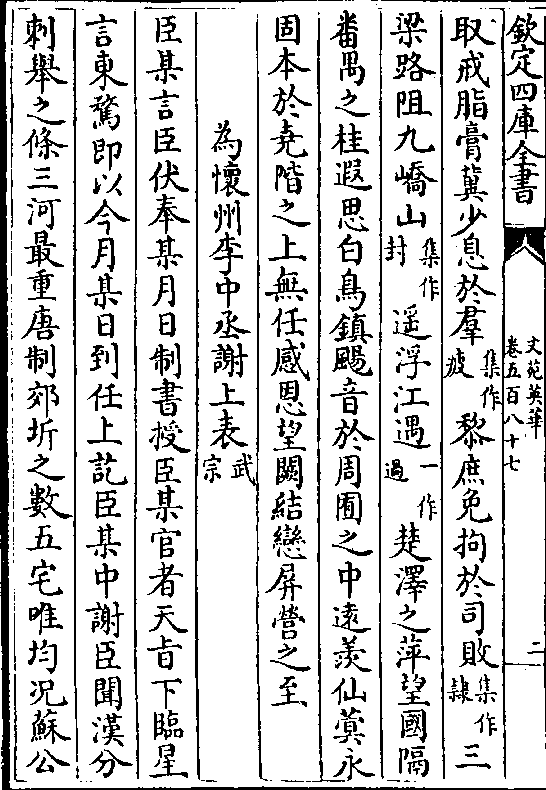 欽定四庫全書
文苑英華
卷五百八十七
二
取戒脂膏冀少息於羣集作疲黎庶免拘於司敗集作隸三
梁路阻九嶠山集作封遥浮江遇一作過楚澤之萍望國隔
番禺之桂遐思白鳥鎮颺音於周囿之中遠羡仙蓂永
固本於堯階之上無任感恩望闕結戀屏營之至
為懷州李中丞謝上表武宗
臣某言臣伏奉某月日制書授臣某官者天旨下臨星
言東騖即以今月某日到任上訖臣某中謝臣聞漢分
刺舉之條三河最重唐制郊圻之數五宅唯均況蘇公